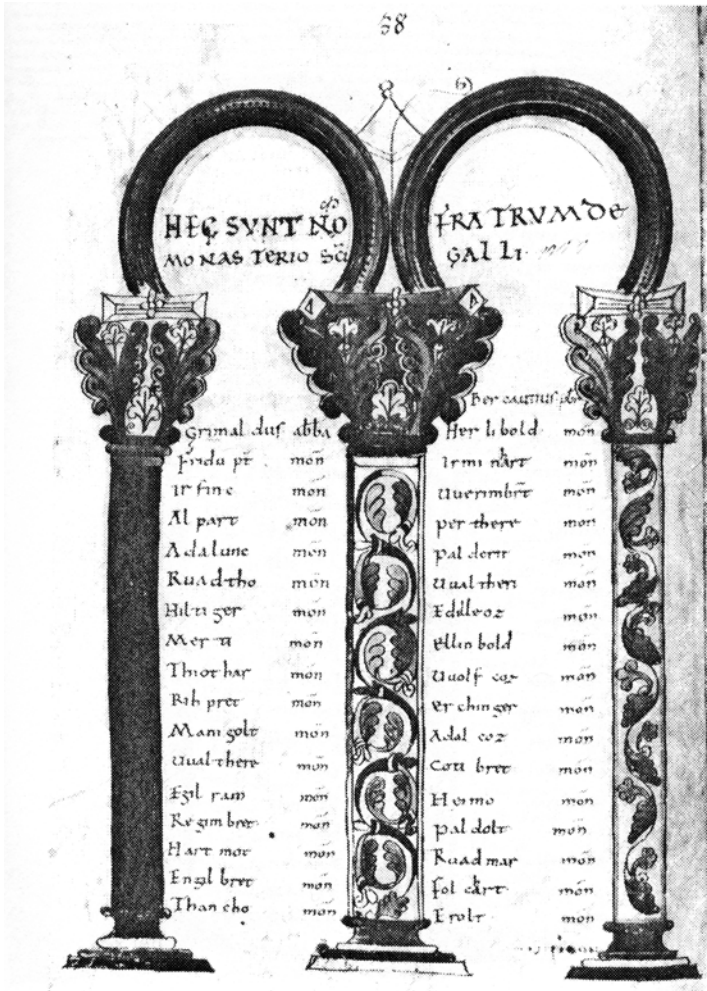 68
HEC SVNT NO
MONASTERIO SCI
Grimaldus abba
Fridu pt mon
Irfinc mon
Alpart mon
Adalunc mon
Ruadtho mon
Hiltiger mon
Merti mon
Thiothar mon
Rihpret mon
Manigolt mon
Uualthere mon
Egilram mon
Regimbret mon
Hartmot mon
Engilbret mon
Thancho mon
FRATRVM DE
GALLI
Herlibold mon
Irminart mon
Uuerimbret mon
perthere mon
paldene mon
Uualtheri mon
Edilcoz mon
ellinbold mon
Uuolfcoz mon
erchinger mon
Adalcoz mon
Cotibret mon
Heimo mon
paldolt mon
Ruadmar mon
folcart mon
Erolt mon